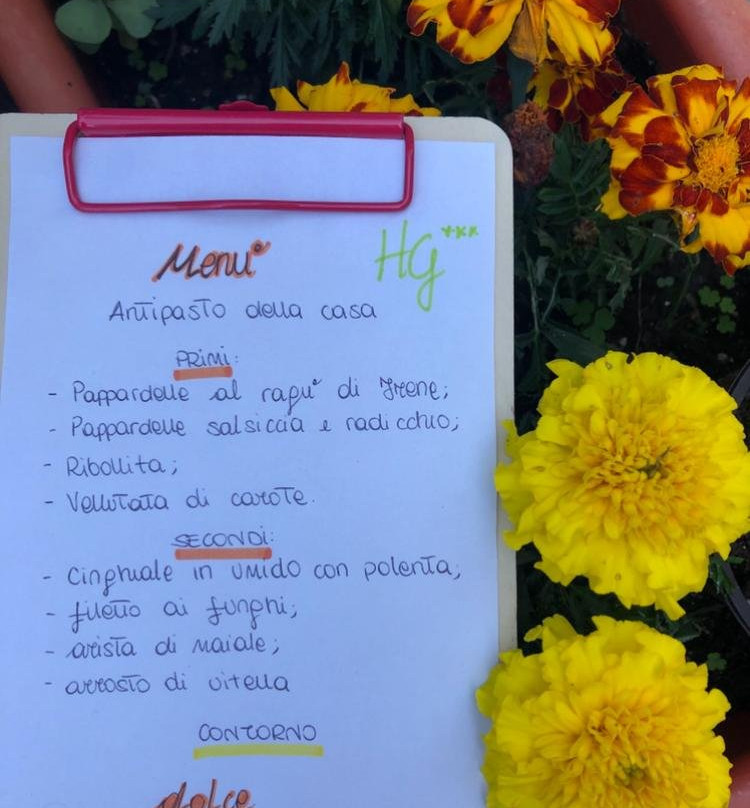 Menù
HG xxx
Antipasto della casa
PRIMI:
- Pappardelle al ragù di Irene;
- Pappardelle salsiccia e radicchio;
- Ribollita;
- Vellutata di carote.
SECONDI:
- Cinghiale in umido con polenta;
- filetto ai funghi;
- arista di Maiale;
- arrosto di vitella
CONTORNO
dolce